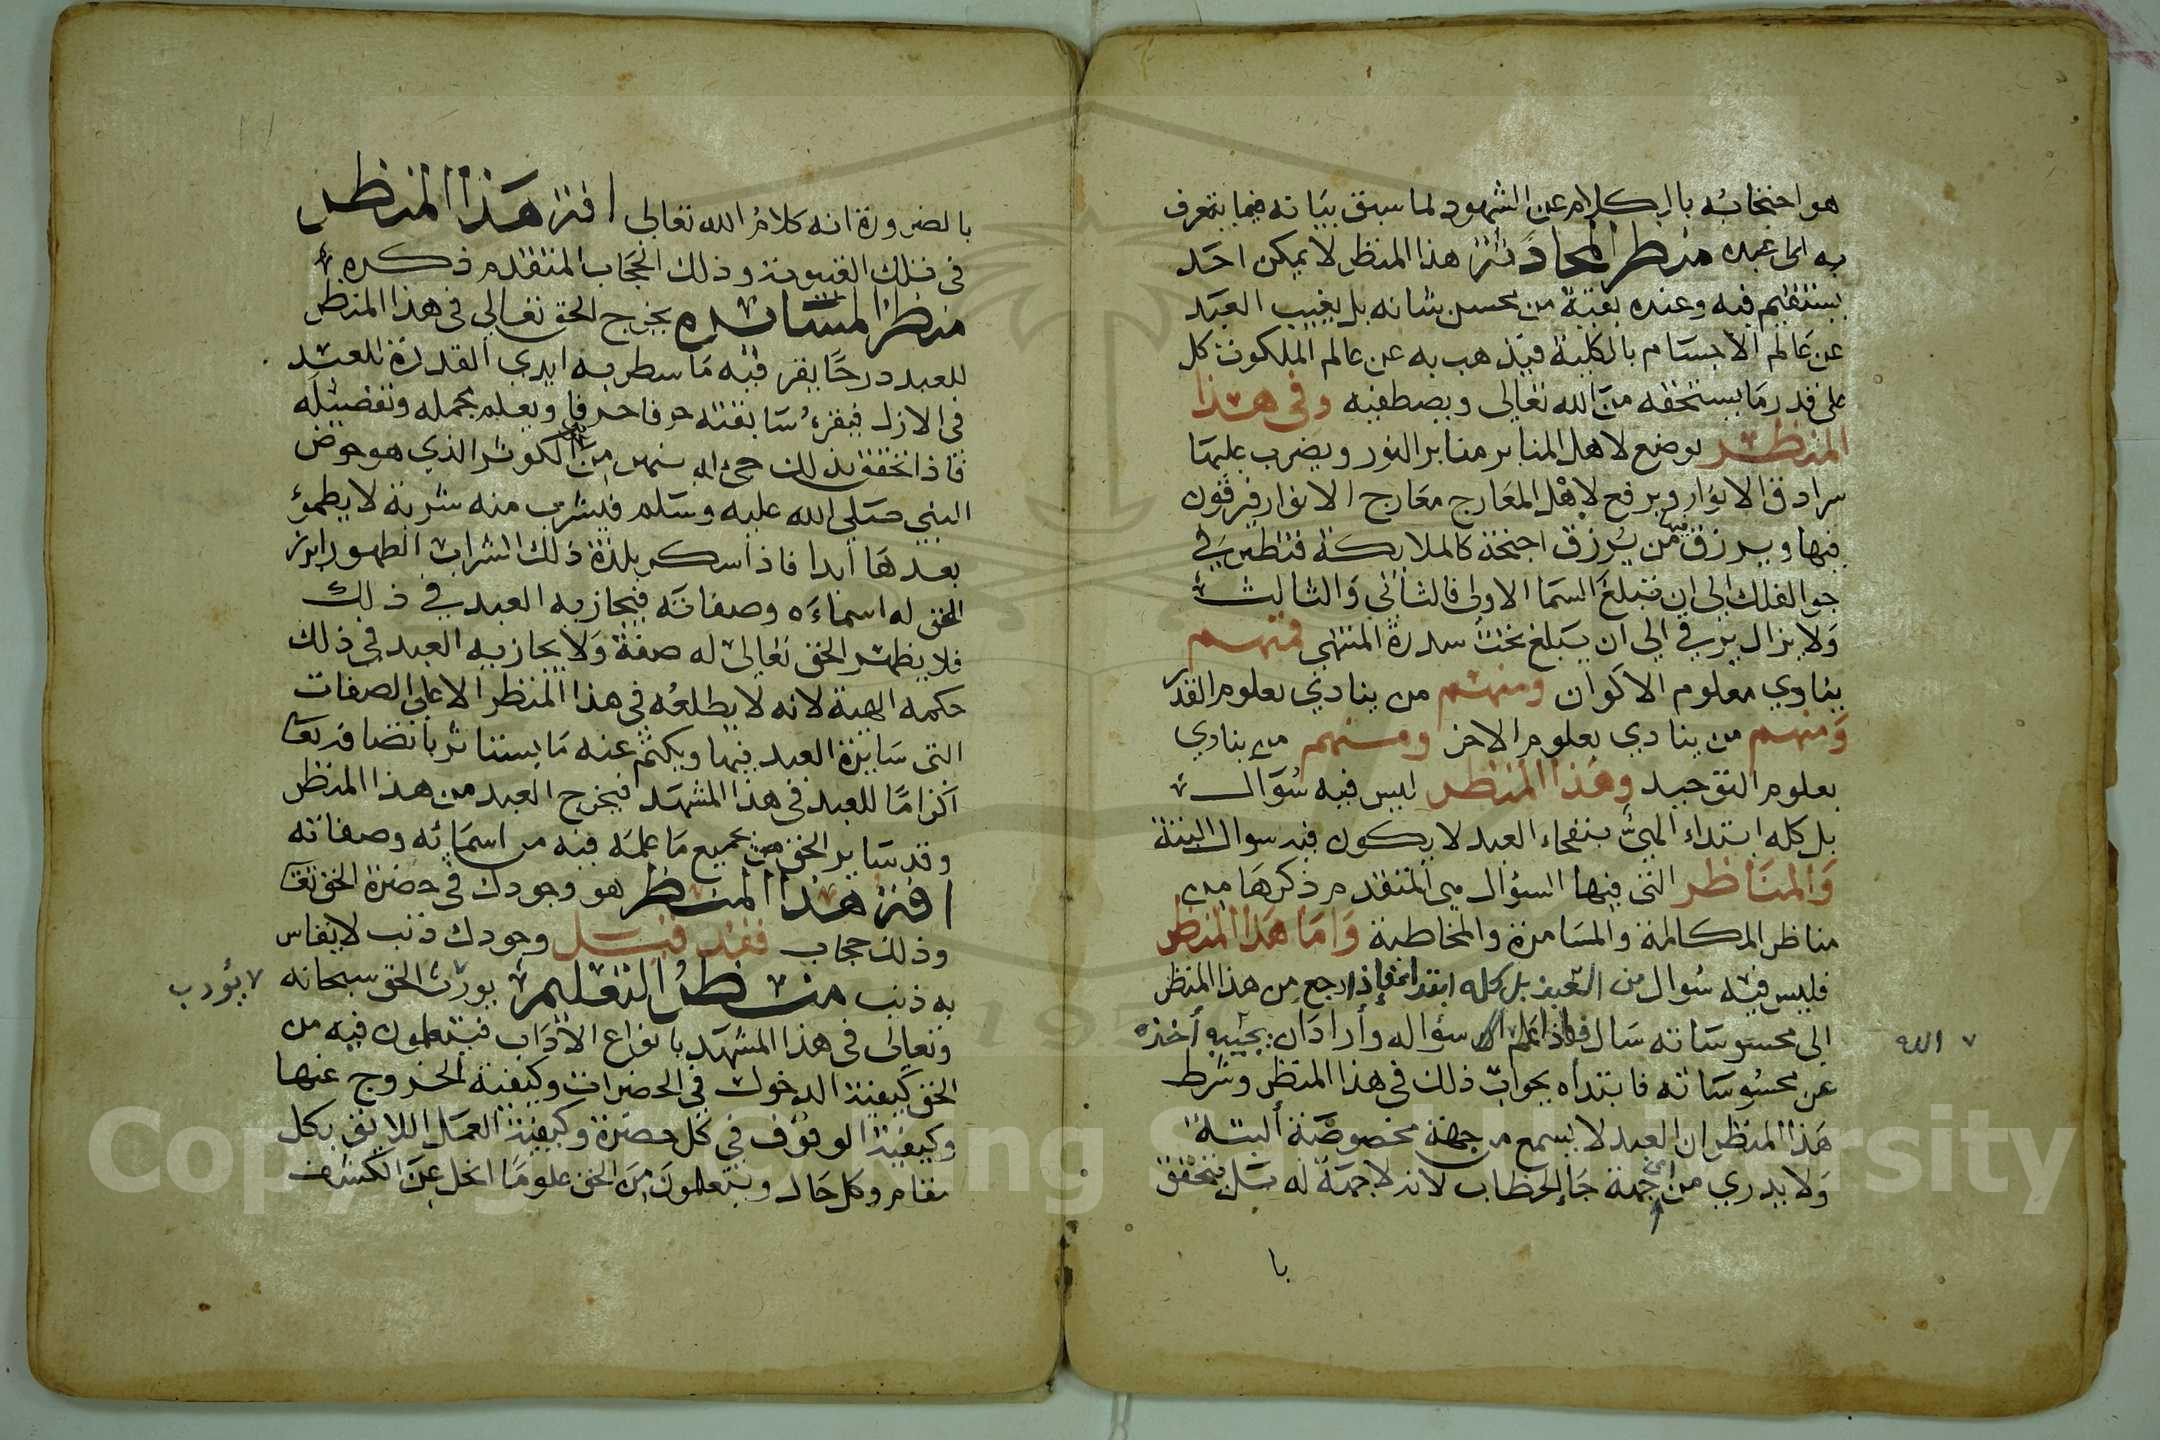 هو احتجابه بالكلام عن الشهود لما سبق بيانه فيما يتعرف
به الى عبده منظر المحادثة هذا المنظر لا يمكن احد
يستقيم فيه وعنده بقية من محسوساته بل يغيب العبد
عن عالم الاجسام بالكلية فيذهب به عن عالم الملكوت كل
على قدر ما يستحقه من الله تعالى ويصطفيه وفى هذا
المنظر يوضع لاهل المنابر منابر النور ويضرب عليها
سرادق الانوار ويرفع لاهل المعارج معارج الانوار فيرقون
فيها ويرزق فيها من يرزق اجنحة كالملايكة فتطير في
جو الفلك الى ان تبلغ السما الاولى فالثاني والثالث
ولا يزال يرقي الي ان يبلغ تحت سدرة المنتهى فمنهم
ينادي بعلوم الاكوان ومنهم من ينادي بعلوم القدر
ومنهم من ينادي بعلوم الاخر ومنهم من ينادي
بعلوم التوحيد وهذا المنظر ليس فيه سؤال
بل كله ابتداء الهي بنفحاء العبد لا يكون فيه سوال البتة
والمناظر التى فيها السؤال هي المتقدم ذكرها من
مناظر المكالمة والمسامرة والمخاطبة واما هذا المنظر
فليس فيه سؤال من العبد بل كله ابتدا فاذا رجع من هذا المنظر
الى محسوساته سال فاذا علم سؤاله وأراد ان يجيبه أخذه
الله
عن محسوساته فابتداه بجواب ذلك في هذا المنظر وشرط
هذا المنظر ان العبد لا يسمع من جهة مخصوصة ألبتة
ولا يدري من أي جهة جا الخطاب لانه لا جهة له بل يتحقق
با
بالضرورة انه كلام الله تعالى افة هذا المنظر
فى تلك الغيبوبة وذلك الحجاب المتقدم ذكره
منظر المسايرة يخرج الحق تعالى فى هذا المنظر
للعبد درجا يقرا فيه ما سطر به ايدي القدرة للعبد
فى الازل فيقرء سابقته حرفا حرفا ويعلم بجمله وتفصيله
فاذا تحقق بذلك جئ اليه بنهر من الكوثر الذي هو حوض
النبي صلى الله عليه وسلم فيشرب منه شربة لا يظمؤ
بعدها ابدا فاذا سكر بلذة ذلك الشراب الطهور ابرز
الحق له اسماءه وصفاته فيجازيه العبد في ذلك
فلا يظهر الحق تعالى له صفة ولا يجازيه العبد في ذلك
حكمه الهية لانه لا يطلعه في هذا المنظر الا على الصفات
التى سايرة العبد فيها ويكتم عنه ما يستاثر باتصافه تعا
اكراما للعبد فى هذا المشهد فيخرج العبد من هذا المنظر
وقد ساير الحق بجميع ما علمه فيه من اسمائه وصفاته
افة هذا المنظر هو وجودك في حضرة الحق تعا
وذلك حجاب فقد قيل وجودك ذنب لا يقاس
به ذنب منظر التعليم يورث الحق سبحانه
يؤدب
وتعالى في هذا المشهد بانواع الاداب فيتعلمون فيه من
الحق كيفية الدخول في الحضرات وكيفية الخروج عنها
وكيفية الوقوف في كل حضرة وكيفية العمل اللايق بكل
مقام وكل حال ويتعلمون من الحق علوما انحل عن الكشف
Copyright © King Saud University